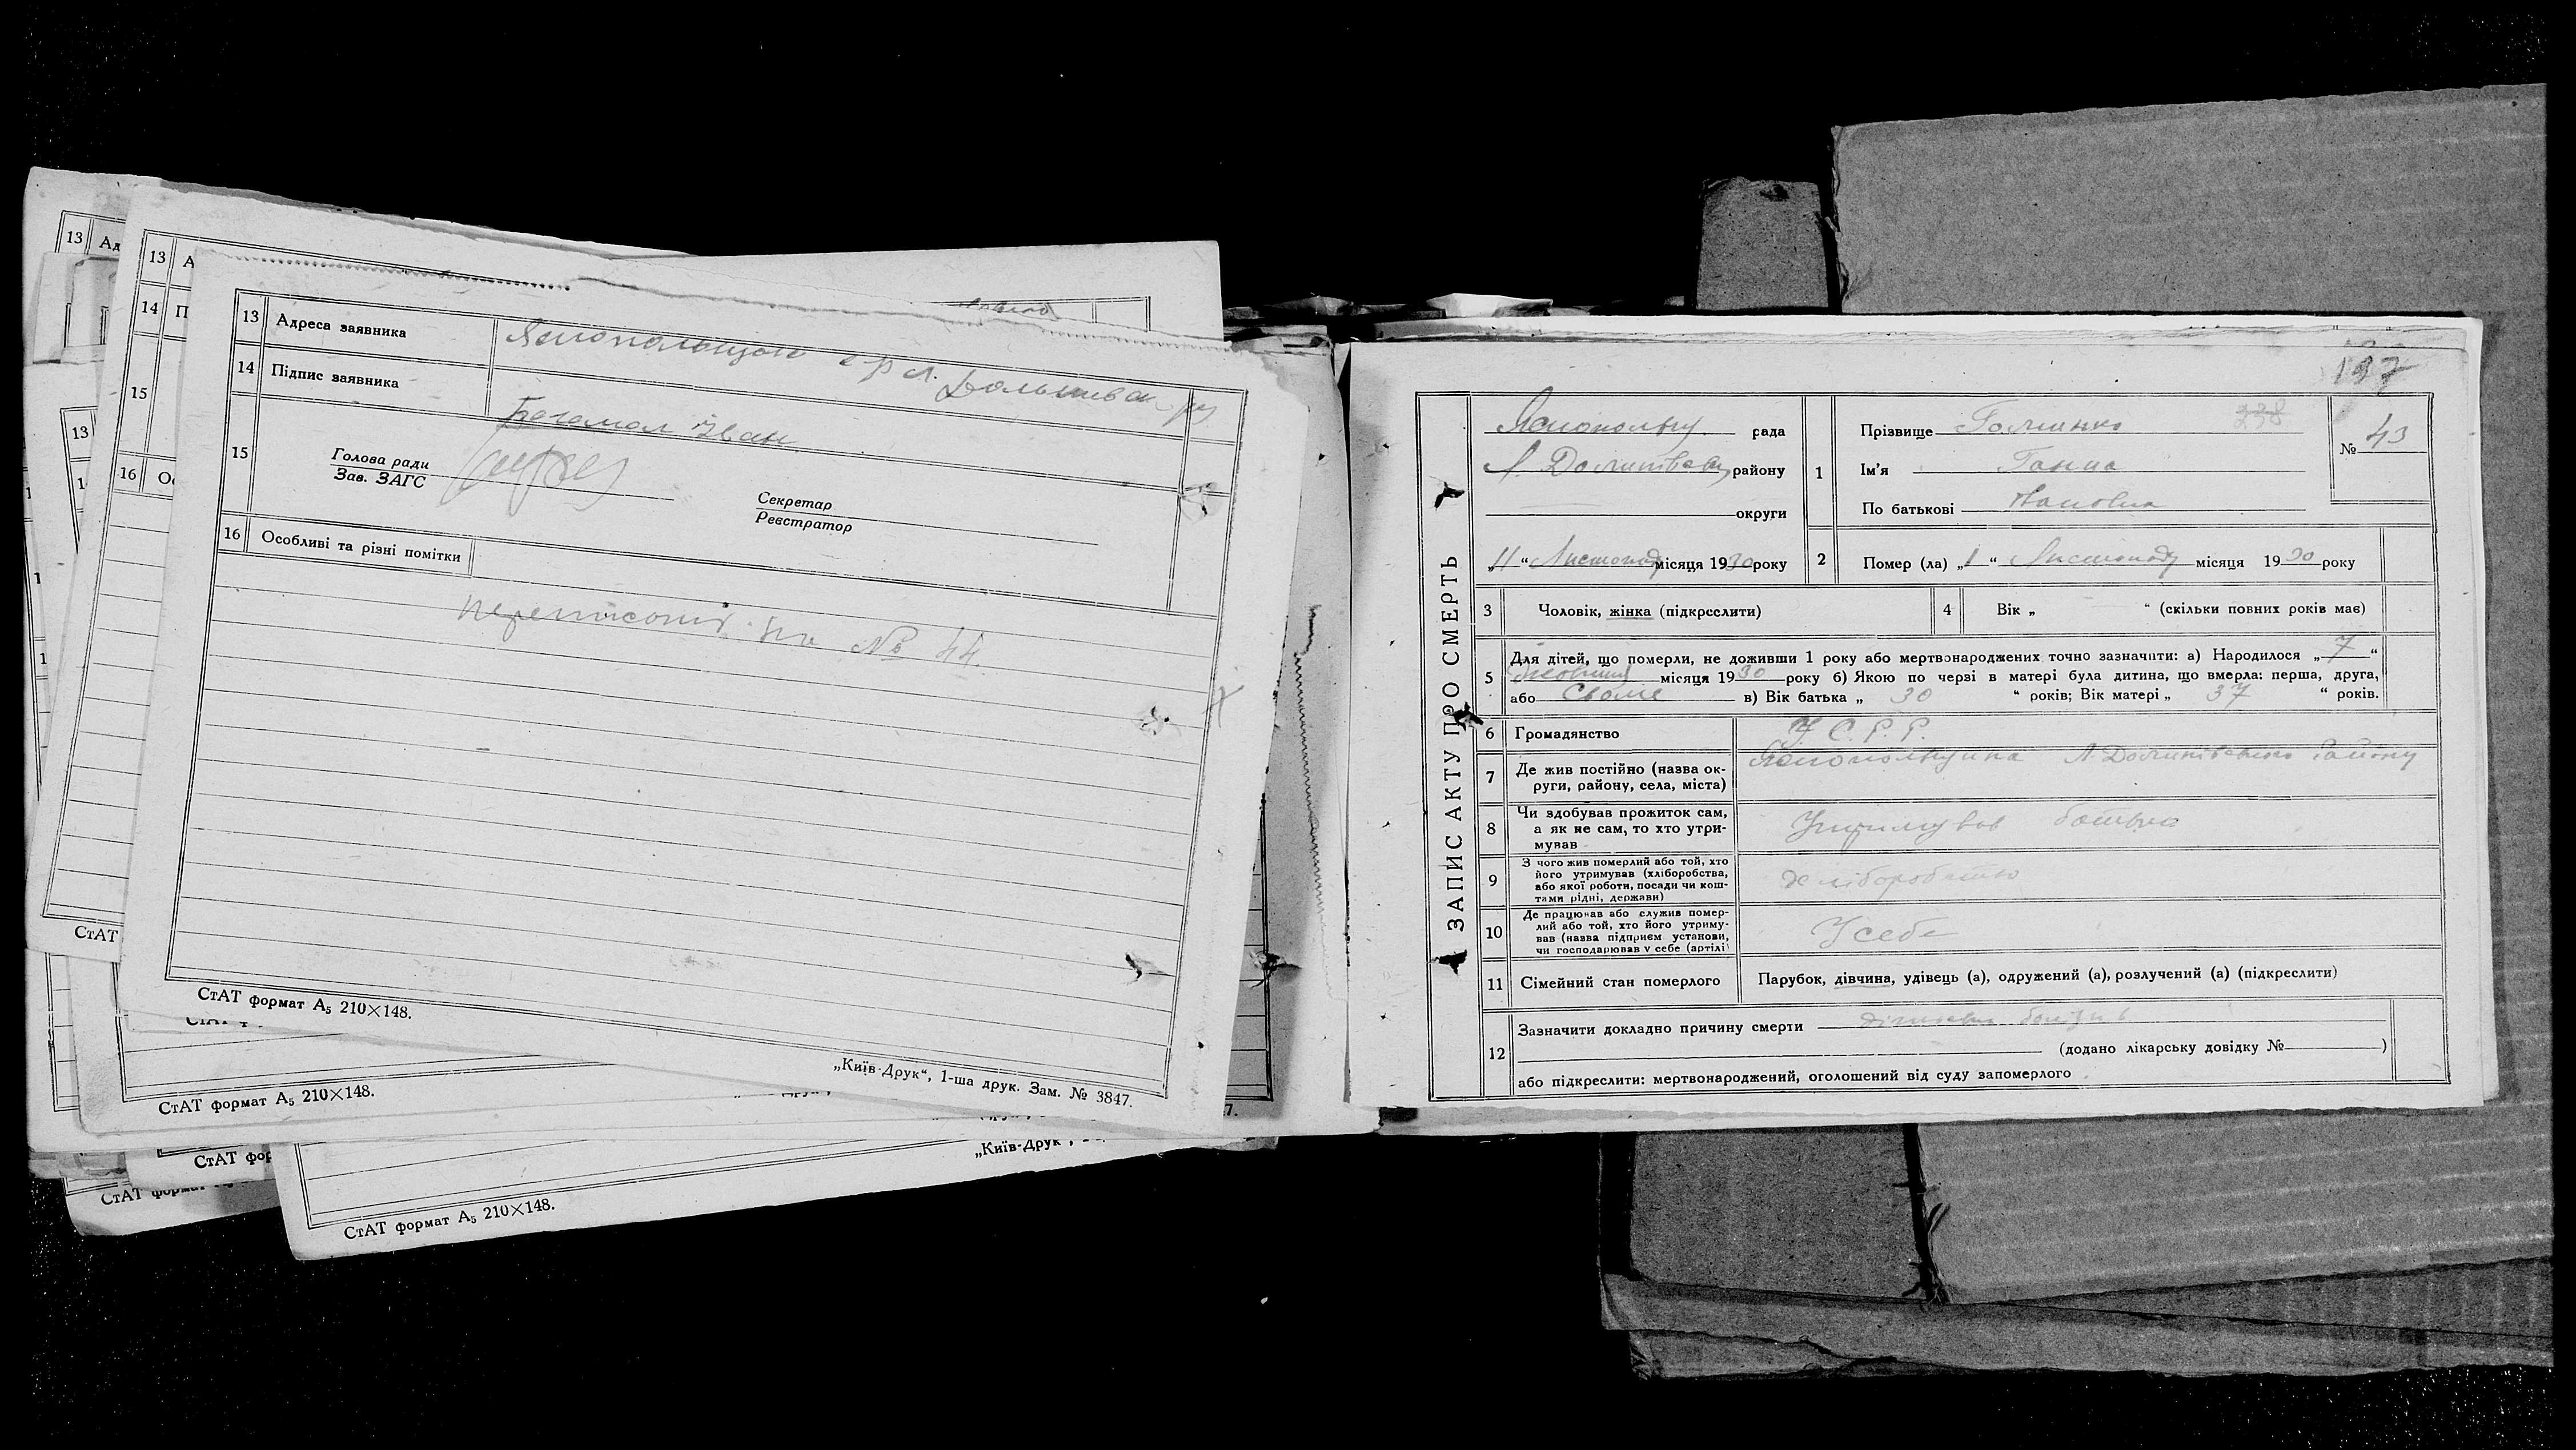 13 Адреса заявника
14 Підпис заявника
Іван
15
Голова ради
Зав. ЗАГС
Секретар
Реєстратор
16 Особливі та різні помітки
на № 44
СтАТ формат А5 210×148.
„Київ-Друк“, 1-ша друк. Зам. № 3847.
13 А
14 П
15
16 О
13 Ад
13
СтАТ
СтАТ формат А5 210×148.
СтАТ фор
„Київ-Друк“,
СтАТ формат
СтАТ формат А5 210×148.
197
ЗАПИС АКТУ ПРО СМЕРТЬ
рада
району
округи
„11“ Листопад місяця 1930 року
1
Прізвище
238
Ім'я Ганна
По батькові
№ 43
2 Помер (ла) „1“ Листопад місяця 1930 року
3 Чоловік, жінка (підкреслити)
4 Вік „ “ (скільки повних років має)
5 Для дітей, що померли, не доживши 1 року або мертвонароджених точно зазначити: а) Народилося „7“
Жовтня місяця 1930 року б) Якою по черзі в матері була дитина, що вмерла: перша, друга,
або в) Вік батька „ 30 “ років; Вік матері „ 37 “ років.
6 Громадянство У.С.Р.Р.
7 Де жив постійно (назва округи, району, села, міста) району
8 Чи здобував прожиток сам, а як не сам, то хто утримував Утримував батько
9 З чого жив померлий або той, хто його утримував (хліборобства, або якої роботи, посади чи коштами рідні, держави) хліборобство
10 Де працював або служив померлий або той, хто його утримував (назва підприєм установи, чи господарював у себе (артілі) У себе
11 Сімейний стан померлого Парубок, дівчина, удівець (а), одружений (а), розлучений (а) (підкреслити)
12 Зазначити докладно причину смерти
(додано лікарську довідку № )
або підкреслити: мертвонароджений, оголошений від суду запомерлого